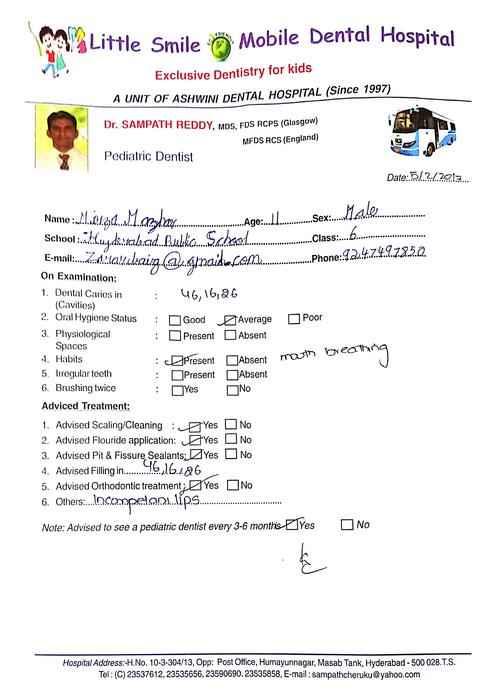 Little Smile Mobile Dental Hospital
Exclusive Dentistry for kids
A UNIT OF ASHWINI DENTAL HOSPITAL (Since 1997)
Dr. SAMPATH REDDY, MDS, FDS RCPS (Glasgow)
MFDS RCS (England)
Pediatric Dentist
Date: 5/7/2017
Name : Mirza Mazhar Age: 11 Sex: Male
School : Hyderabad Public School Class: 6
E-mail: @gmail.com Phone: 9247497850
On Examination:
1. Dental Caries in (Cavities) : 46,16,26
2. Oral Hygiene Status : Good Average Poor
3. Physiological Spaces : Present Absent
4. Habits : Present Absent mouth breathing
5. Irregular teeth : Present Absent
6. Brushing twice : Yes No
Adviced Treatment:
1. Advised Scaling/Cleaning : Yes No
2. Advised Flouride application: Yes No
3. Advised Pit & Fissure Sealants: Yes No
4. Advised Filling in 46,16,26
5. Advised Orthodontic treatment: Yes No
6. Others: Incompetant lips
Note: Advised to see a pediatric dentist every 3-6 months Yes No
Hospital Address:-H.No. 10-3-304/13, Opp: Post Office, Humayunnagar, Masab Tank, Hyderabad - 500 028.T.S.
Tel : (C) 23537612, 23535656, 23590690. 23535858, E-mail : sampathcheruku@yahoo.com